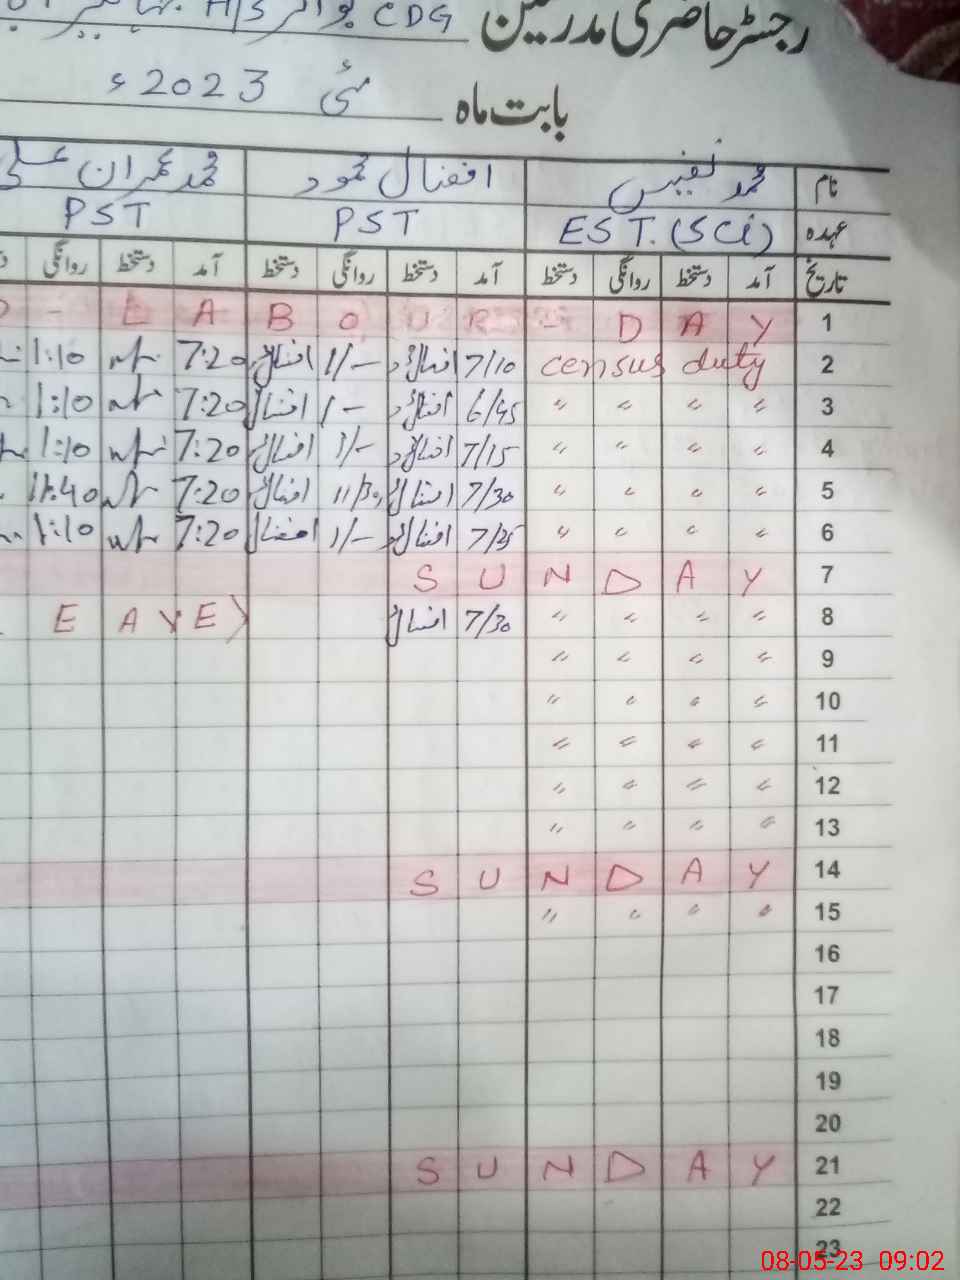 رجسٹر حاضری مدرسین CDG بوائز H/S
بابت ماہ مئی 2023ء
نام محمد نفیس افضال محمود محمد عمران علی
عہدہ EST.(SCi) PST PST
تاریخ آمد دستخط روانگی دستخط آمد دستخط روانگی دستخط آمد دستخط روانگی
1 LABOUR - DAY
2 census duty 7/10 افضال 1/- افضال 7:20 1:10
3 " " " " 6/45 افضال 1/- افضال 7:20 1:10
4 " " " " 7/15 افضال 1/- افضال 7:20 1:10
5 " " " " 7/30 افضال 11/30 افضال 7:20 11:40
6 " " " " 7/25 افضال 1/- افضال 7:20 1:10
7 SUNDAY
8 " " " " 7/30 افضال EAVE
9 " " " "
10 " " " "
11 " " " "
12 " " " "
13 " " " "
14 SUNDAY
15 " " " "
16
17
18
19
20
21 SUNDAY
22
23
08-05-23 09:02